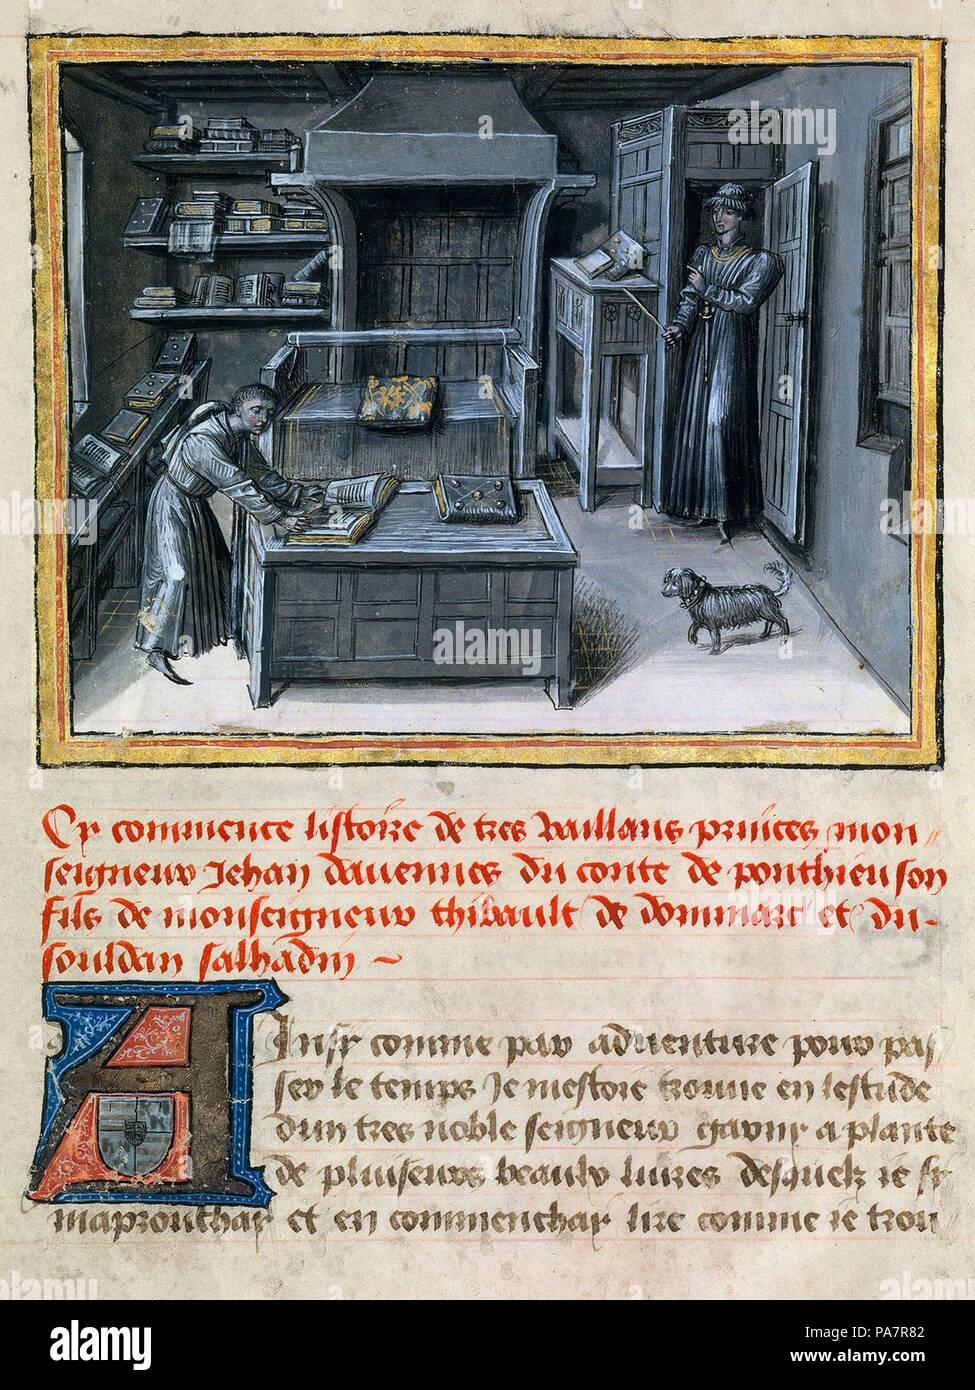 Cy commence listoire de tres vaillans princes mon
seigneur Jehan davennes du conte de ponthieu son
fils de monseigneur thibault de dommarc et du
souldan salhadin
Ainsy comme par adventure pour pas
ser le temps Je mestoie trouve en lestude
dun tres noble seigneur garny a plante
de pluiseurs beaulx livres desquelz ie
maprouchay et en commenchay lire comme ie trou
alamy stock photo
alamy
Image ID: PA7R82
www.alamy.com